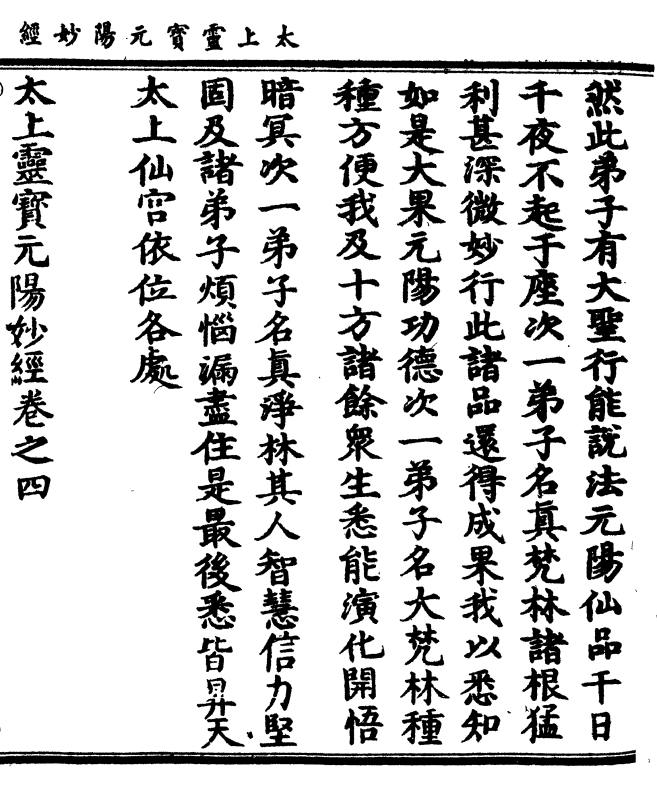 太上靈寳元陽妙經
然此弟子有大聖行能說法元陽仙品千日
千夜不起于座次一弟子名真梵林諸根猛
利甚深微妙行此諸品還得成果我以悉知
如是大果元陽功德次一弟子名大梵林種
種方便我及十方諸餘衆生悉能演化開悟
暗冥次一弟子名真淨林其人智慧信力堅
固及諸弟子煩惱漏盡住是最後悉皆昇天
太上仙宫依位各處
太上靈寳元陽妙經卷之四